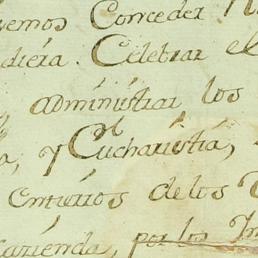 vemos Conceder
diera. Celebrar el
administrar los
a, y Eucharistia,
entierros de los
arienda, por los Im